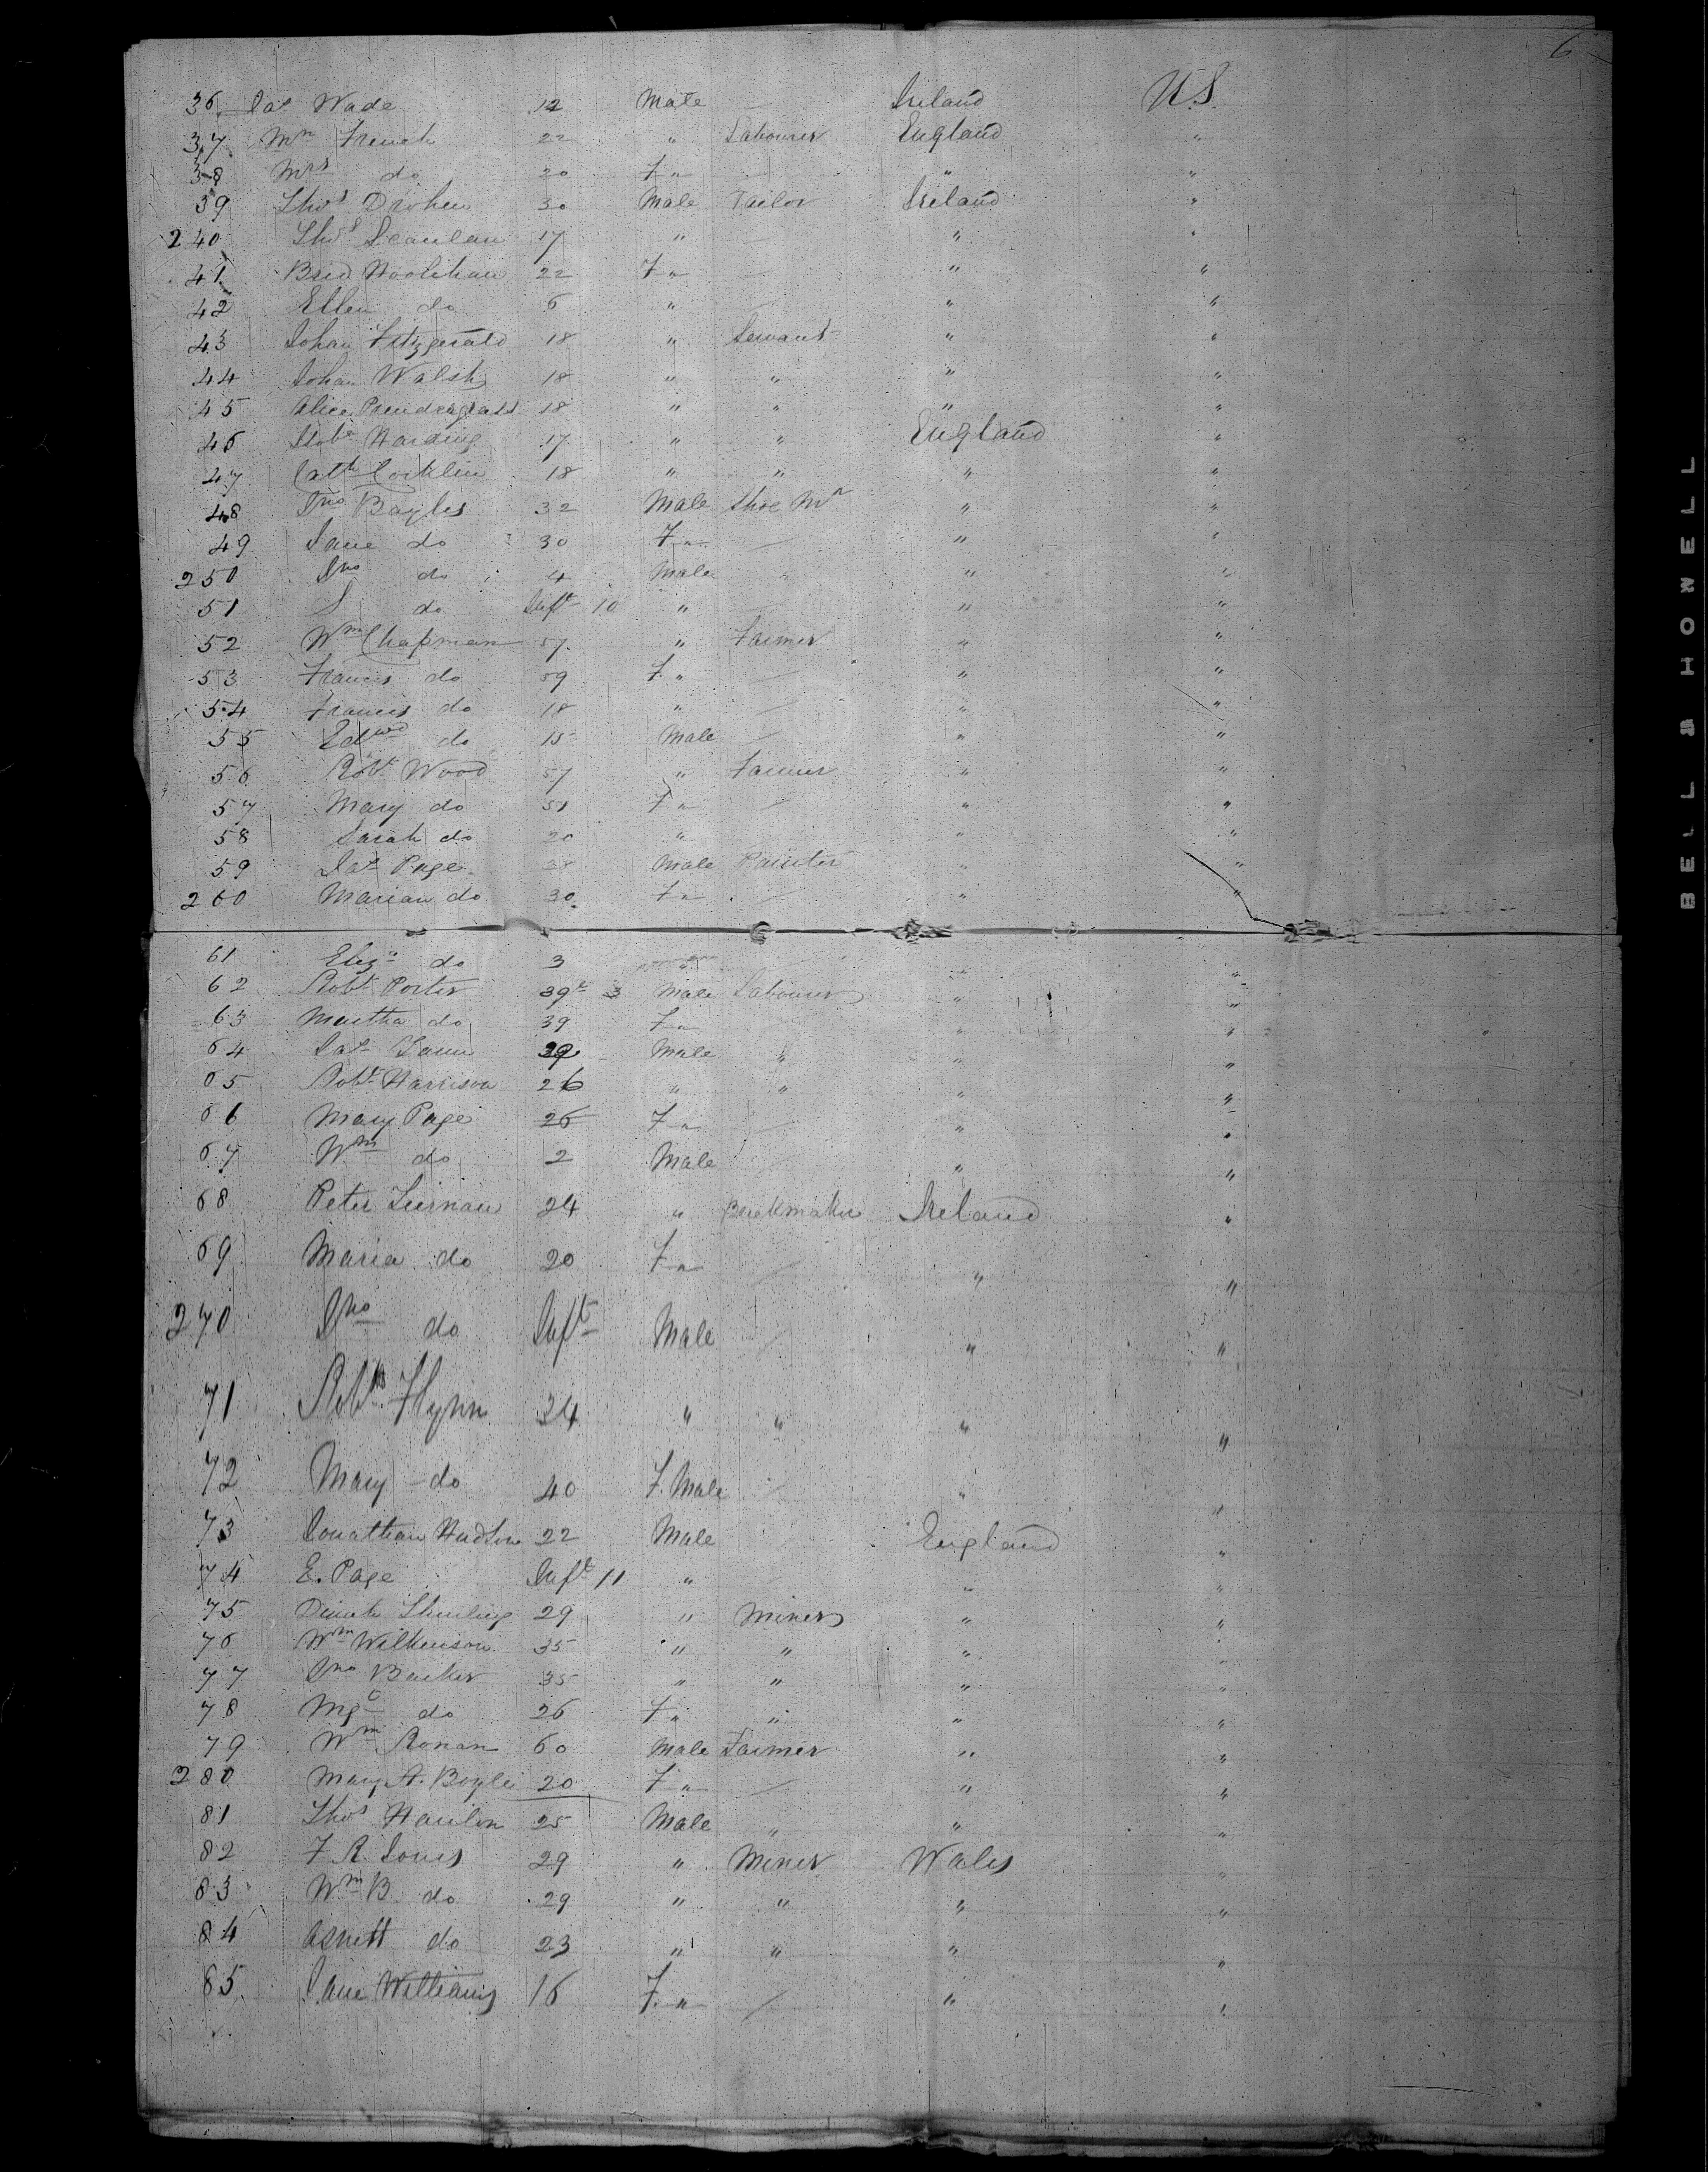 6
36 Jas Wade 12 Male — Ireland U.S.
37 Wm French 22 " Labourer England "
38 Mrs do 20 F " — " "
39 Thos Drohen 30 Male Tailor Ireland "
240 Thos Scanlan 17 " " "
41 Brid Hoolihan 22 F " — " "
42 Ellen do 6 " — " "
43 Johan Fitzgerald 18 " Servant " "
44 Johan Walsh 18 " " " "
45 Alice Prendergrast 18 " " " "
46 Harding 17 " " England "
47 Cath Conklin 18 " " " "
48 Jno Bayles 32 Male Shoe Mr " "
49 Jane do 30 F " — " "
250 Jno do 4 Male " " "
51 S do Inft 10 " — " "
52 Wm Chapman 57 " Farmer " "
53 Francis do 59 F " — " "
54 Francis do 18 " — " "
55 Edwd do 15 Male — " "
56 Robt Wood 57 " Farmer " "
57 Mary do 51 F " — " "
58 Sarah do 20 " " "
59 Jas Page 38 Male Painter " "
260 Marian do 30 F " — " "
61 Eliza do 3 " " "
62 Robt Porter 39 Male Labourer " "
63 Martha do 39 F " " "
64 Jas 39 Male " " "
65 Robt Harrison 26 " " " "
66 Mary Page 26 F " — " "
67 Wm do 2 Male — " "
68 Peter 24 " Brickmaker Ireland "
69 Maria do 20 F " — " "
270 Jno do Inft Male — " "
71 Robt Flynn 34 " " " "
72 Mary do 40 F. Male — " "
73 Jonathan Hudson 22 Male — England "
74 E. Page Inft 11 " — " "
75 29 " Miner " "
76 Wm Wilkinson 35 " " " "
77 Jno Barker 35 " " " "
78 Mgt do 26 F " " " "
79 Wm Ronan 60 Male Farmer " "
280 Mary A. Boyle 20 F " — " "
81 Thos Hanlon 25 Male " " "
82 F. R. Jones 29 " Miner Wales "
83 Wm B. do 29 " " " "
84 do 23 " " " "
85 Jane Williams 16 F. " — " "
BELL & HOWELL